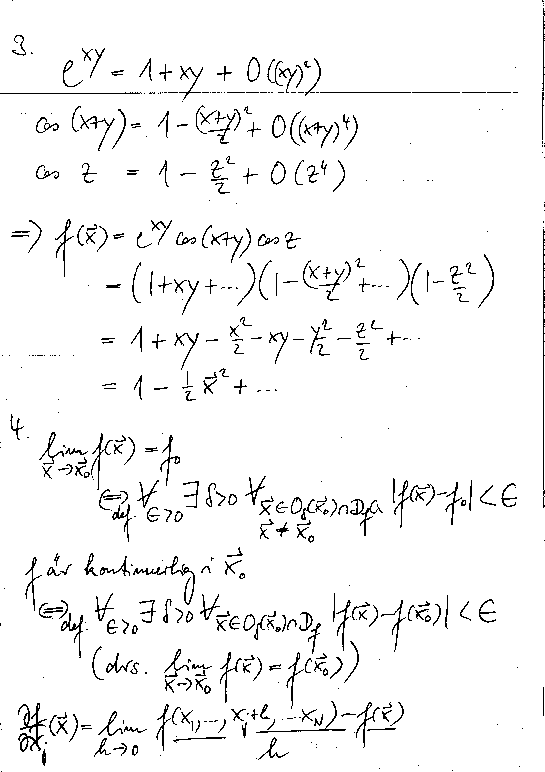 3.
e^{xy} = 1 + xy + O((xy)²)
cos (x+y) = 1 - (x+y)²/2 + O((x+y)⁴)
cos z = 1 - z²/2 + O(z⁴)
=> f(x⃗) = e^{xy} cos(x+y) cos z
= (1+xy+...)(1-(x+y)²/2+...)(1-z²/2)
= 1 + xy - x²/2 - xy - y²/2 - z²/2 + ...
= 1 - ½ x⃗² + ...
4.
lim_{x⃗→x⃗₀} f(x⃗) = f₀
⇔_{def} ∀_{ε>0} ∃ δ>0 ∀_{x⃗∈O_δ(x⃗₀)∩D_f, x⃗≠x⃗₀} |f(x⃗)-f₀| < ε
f är kontinuerlig i x⃗₀
⇔_{def} ∀_{ε>0} ∃ δ>0 ∀_{x⃗∈O_δ(x⃗₀)∩D_f} |f(x⃗)-f(x⃗₀)| < ε
(dvs. lim_{x⃗→x⃗₀} f(x⃗) = f(x⃗₀))
∂f/∂x_j (x⃗) = lim_{h→0} (f(x₁,..., x_j+h, ...x_N) - f(x⃗))/h